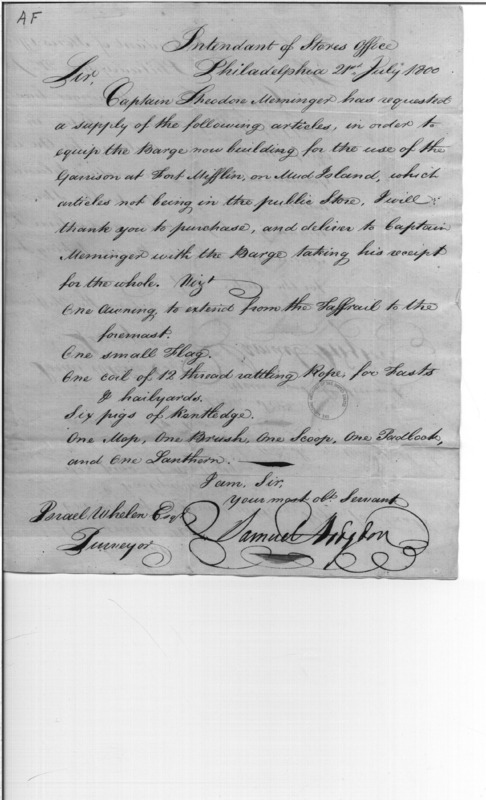 AF
Intendant of Stores Office
Philadelphia 21st July 1800
Sir.
Captain Theodore Memminger has requested
a supply of the following articles, in order to
equip the Barge now building for the use of the
Garrison at Fort Mifflin, on Mud Island, which
articles not being in the public Store, I will
thank you to purchase, and deliver to Captain
Memminger with the Barge taking his receipt
for the whole. Vizt
One Awning to extend from the Taffrail to the
foremast.
One small Flag.
One coil of 12 thread rattling Rope, for Fasts
& hailyards.
Six pigs of Kentledge.
One Mop, One Brush, One Scoop, One Padlock,
and One Lanthern.
I am, Sir,
Your most obt Servant
Israel Whelen Esqr
Samuel Hodgdon
Purveyor